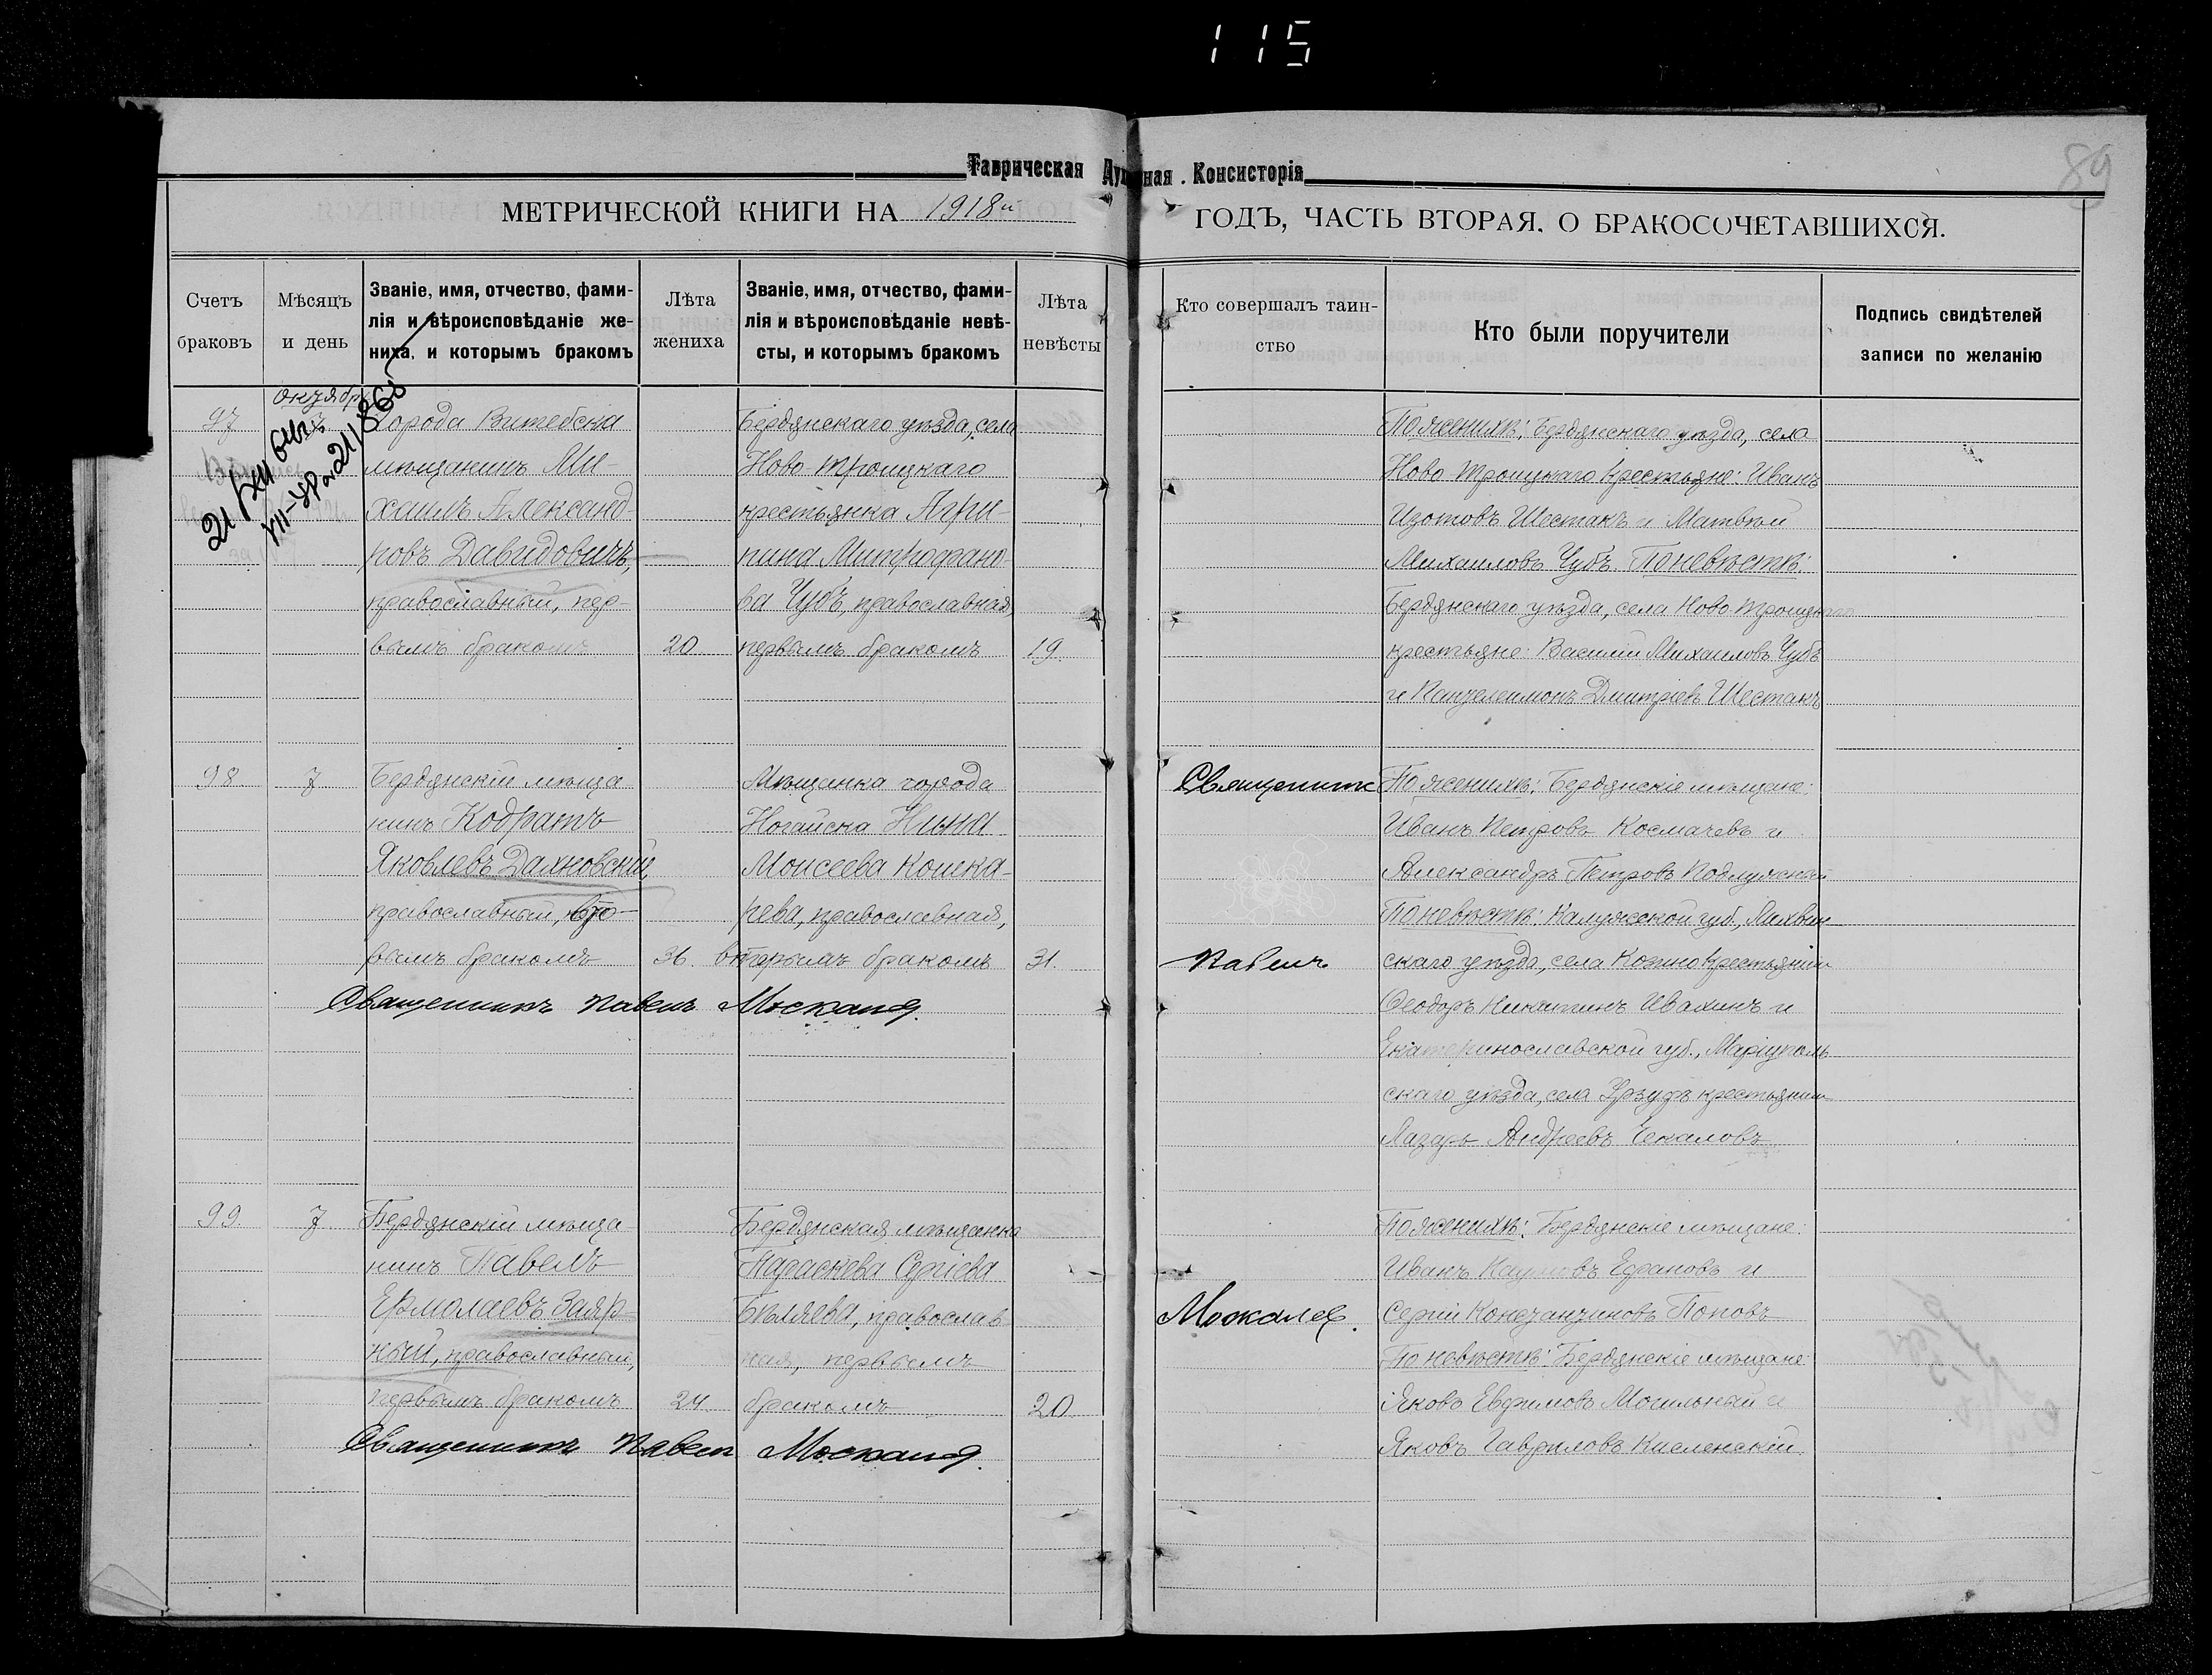 115
89
Таврическая Духовная Консисторія
МЕТРИЧЕСКОЙ КНИГИ НА 1918й ГОДЪ, ЧАСТЬ ВТОРАЯ, О БРАКОСОЧЕТАВШИХСЯ.
Счетъ браковъ
Мѣсяцъ и день
Званіе, имя, отчество, фами-
лія и вѣроисповѣданіе же-
ниха, и которымъ бракомъ
Лѣта жениха
Званіе, имя, отчество, фами-
лія и вѣроисповѣданіе невѣ-
сты, и которымъ бракомъ
Лѣта невѣсты
Кто совершалъ таин-
ство
Кто были поручители
Подпись свидѣтелей
записи по желанію
97
октябрь
7
Города Витебска
мѣщанинъ Ми-
хаилъ Александ-
ровъ Давидовичъ,
православный, пер-
вымъ бракомъ
20
Бердянскаго уѣзда, села
Ново-Троицкаго
крестьянка Агри-
пина Митрофано-
ва Чубъ, православная,
первымъ бракомъ
19.
По женихѣ: Бердянскаго уѣзда, села
Ново Троицкаго крестьяне: Иванъ
Изотовъ Шестакъ и Матвѣй
Михаиловъ Чубъ. По невѣстѣ:
Бердянскаго уѣзда, села Ново Троицкаго
крестьяне: Василий Михаиловъ Чубъ
и Пантелеимонъ Дмитріевъ Шестакъ
98
7
Бердянскій мѣща
нинъ Кодратъ
Яковлевъ Дахновскій,
православный, вто-
рымъ бракомъ
36
Мѣщанка города
Ногайска Нина
Моисеева Кошка-
рева, православная,
вторымъ бракомъ
31.
Священникъ Павелъ
Священникъ
Павелъ
По женихѣ: Бердянскіе мѣщане:
Иванъ Петровъ Космачевъ и
Александръ Петровъ Подлужный
По невѣстѣ: Калужской губ., Лихвин
скаго уѣзда, села Козино крестьянин
Ѳеодоръ Никитинъ Ивахинъ и
Екатеринославской губ., Маріуполь
скаго уѣзда, села Урзуфъ крестьянин
Лазарь Андреевъ Чекаловъ
99.
7
Бердянскій мѣща
нинъ Павелъ
Ермолаевъ Заяр-
ный, православный,
первымъ бракомъ
24.
Бердянская мѣщанка
Параскева Сергіева
Бѣляева, православ
ная, первымъ
бракомъ
20
Священникъ Павелъ
По женихѣ: Бердянскіе мѣщане:
Иванъ Наумовъ Ефановъ и
Сергій Константиновъ Поповъ
По невѣстѣ: Бердянскіе мѣщане:
Яковъ Евфимовъ Могильный и
Яковъ Гавриловъ Кисленскій.